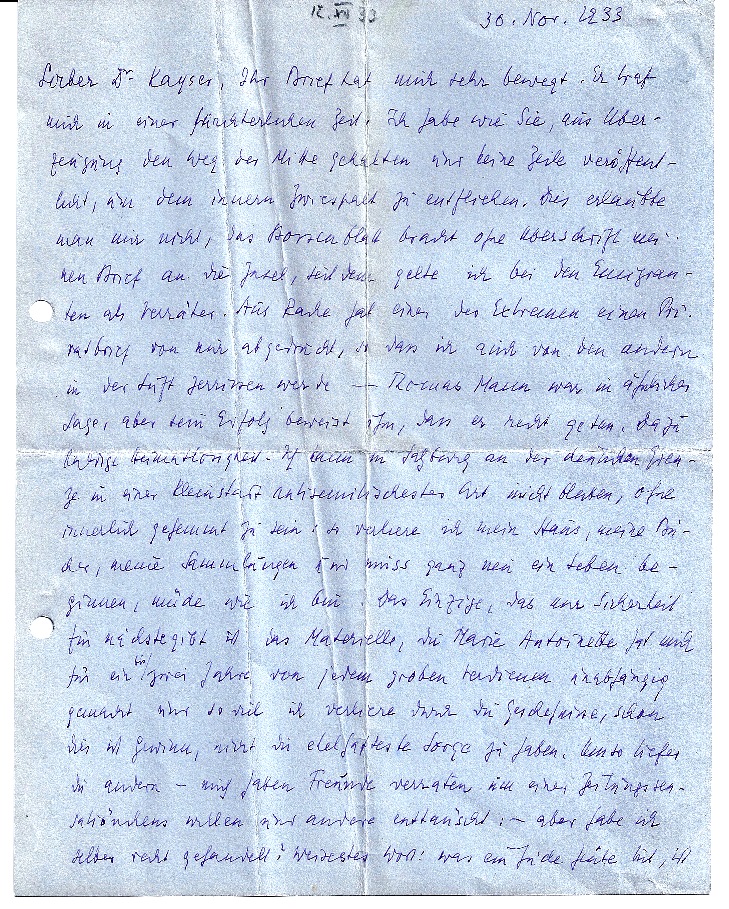 12. XII 33
30. Nov. 1933
Lieber Dr. Kayser, Ihr Brief hat mich sehr bewegt. Er traf
mich in einer fürchterlichen Zeit. Ich habe wie Sie, aus Über-
zeugung den Weg der Mitte gehalten und keine Zeile veröffent-
licht, um dem innern Zwiespalt zu entfliehen. Dies erlaubte
man mir nicht, das Börsenblatt bracht ohne Überschrift mei-
nen Brief an die Insel, seitdem gelte ich bei den Emigran-
ten als Verräter. Aus Rache hat einer der Extremen einen Pri-
vatbrief von mir abgedruckt, so dass ich auch von den andern
in der Luft zerrissen werde — Thomas Mann war in ähnlicher
Lage, aber sein Erfolg beweist ihm, dass er recht getan. Dazu
Heimatlosigkeit. Ich kann in Salzburg an der deutschen Gren-
ze in einer Kleinstadt antisemitischester Art nicht bleiben, ohne
innerlich gehemmt zu sein: so verliere ich mein Haus, meine Bü-
cher, meine Sammlungen und muss ganz neu ein Leben be-
ginnen, müde wie ich bin. Das Einzige, das uns Sicherheit
für nächste gibt ist das Materielle, die Marie Antoinette hat mich
für ein bis zwei Jahre von jedem groben Verdienen unabhängig
gemacht und so viel ich verliere durch die Geschehnisse, schon
dies ist Gewinn, nicht die ekelhafteste Sorge zu haben. Umso tiefer
die andern – mich haben Freunde verraten um einer Zeitungssen-
satiönchens willen und andere enttäuscht: – aber habe ich
selber recht gehandelt? Weisestes Wort: was ein Jude heute tut, ist